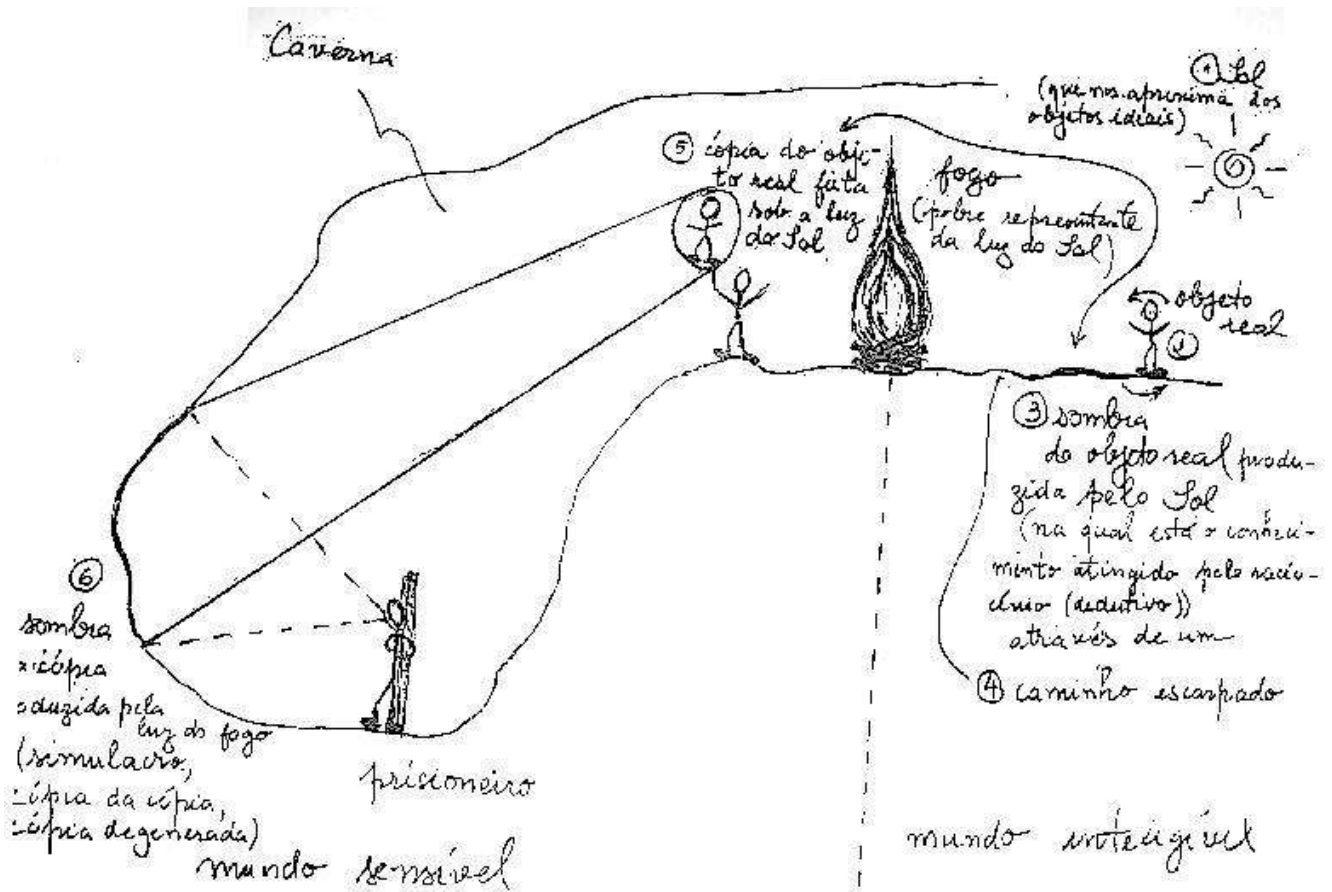 Caverna
① Sol
(que nos aproxima dos
objetos ideais)
⑤ cópia do obje-
to real feita
sob a luz
do Sol
fogo
(pobre representante
da luz do Sol)
objeto
real
①
③ sombra
do objeto real produ-
zida pelo Sol
(na qual está o conheci-
mento atingido pelo racio-
cínio (dedutivo))
através de um
④ caminho escarpado
⑥
sombra
cópia
oduzida pela
luz do fogo
(simulacro,
cópia da cópia,
cópia degenerada)
prisioneiro
mundo sensível
mundo inteligível